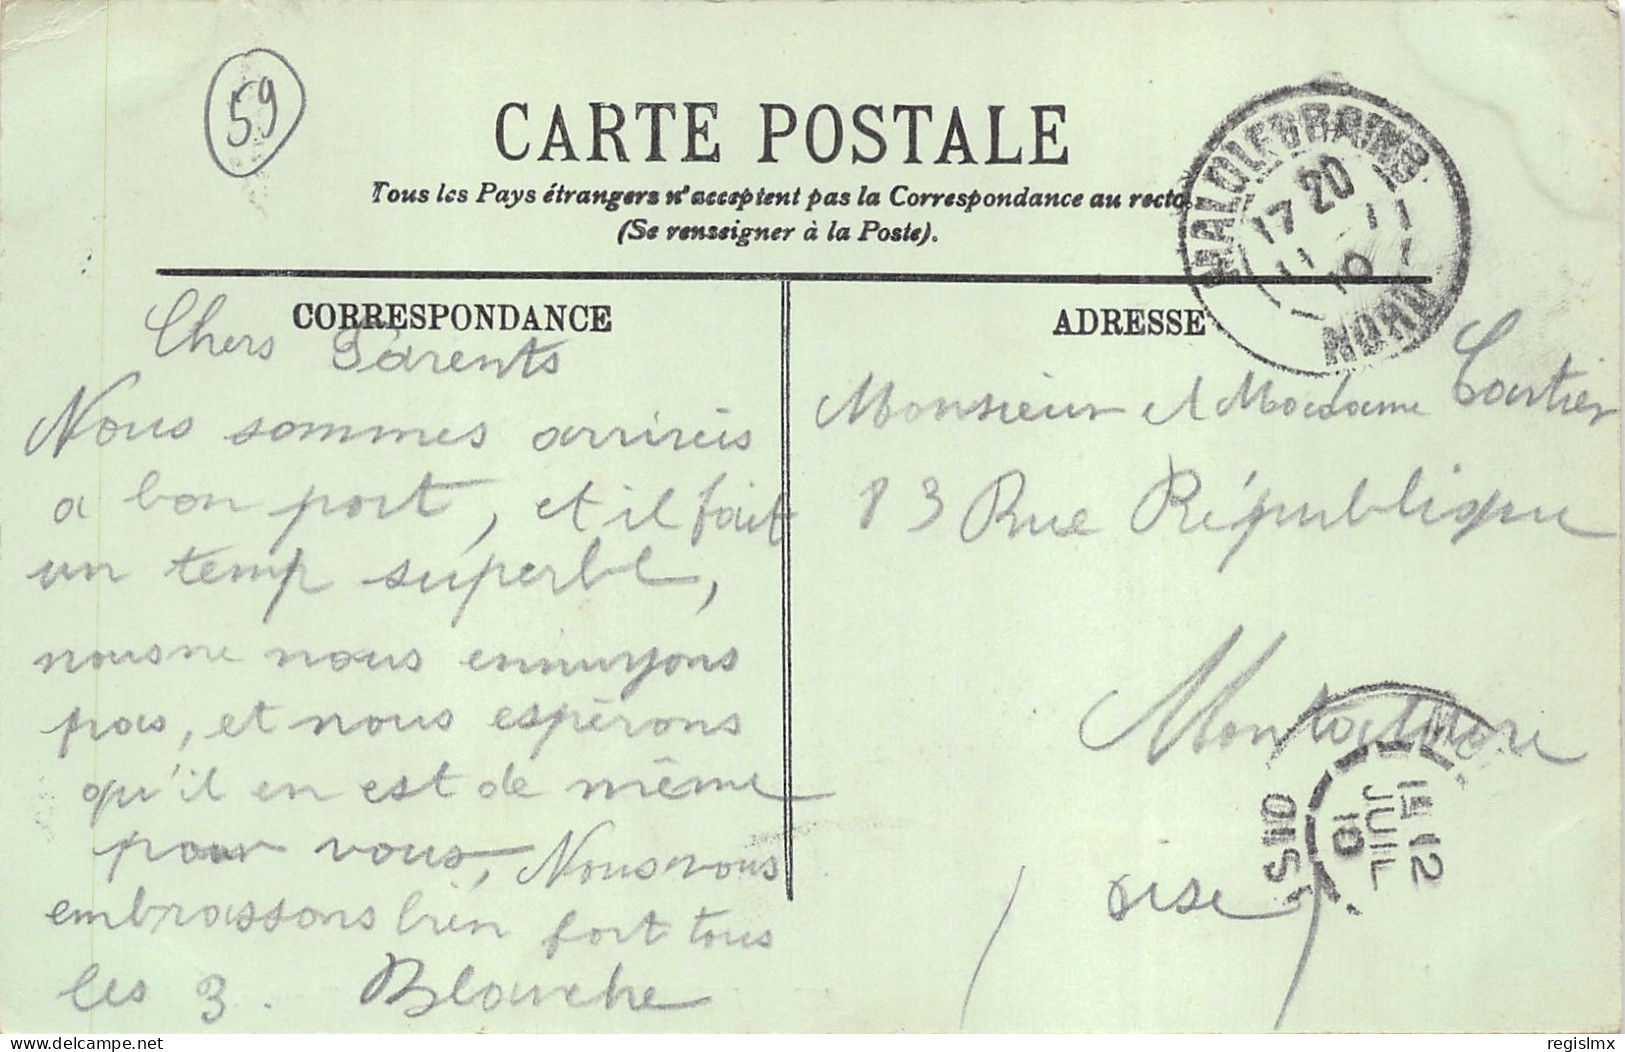 59
CARTE POSTALE
Tous les Pays étrangers n'acceptent pas la Correspondance au recto.
(Se renseigner à la Poste).
MALO LES BAINS
17 20
11 - 11
10
NORD
CORRESPONDANCE
Chers Parents
Nous sommes arrivés
a bon port, et il fait
un temp superbe,
nous ne nous ennuyons
pas, et nous espèrons
qu'il en est de même
pour vous, Nous vous
embrassons bien fort tous
les 3. Blanche
ADRESSE
Monsieur et Madame Cartier
83 Rue République
Montataire
oise
12
JUIL
10
OISE
delcampe.net
regislmx